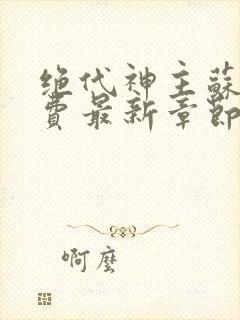 绝代神主蘇
費最新章節
啊麼